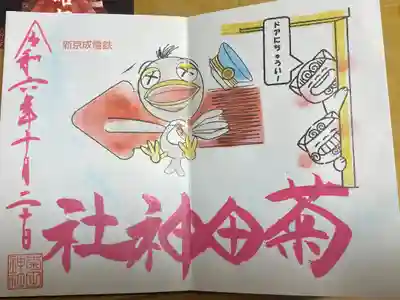 新京成電鉄
ドアにちゅうい!
菊田神社
令和六年十月二十日